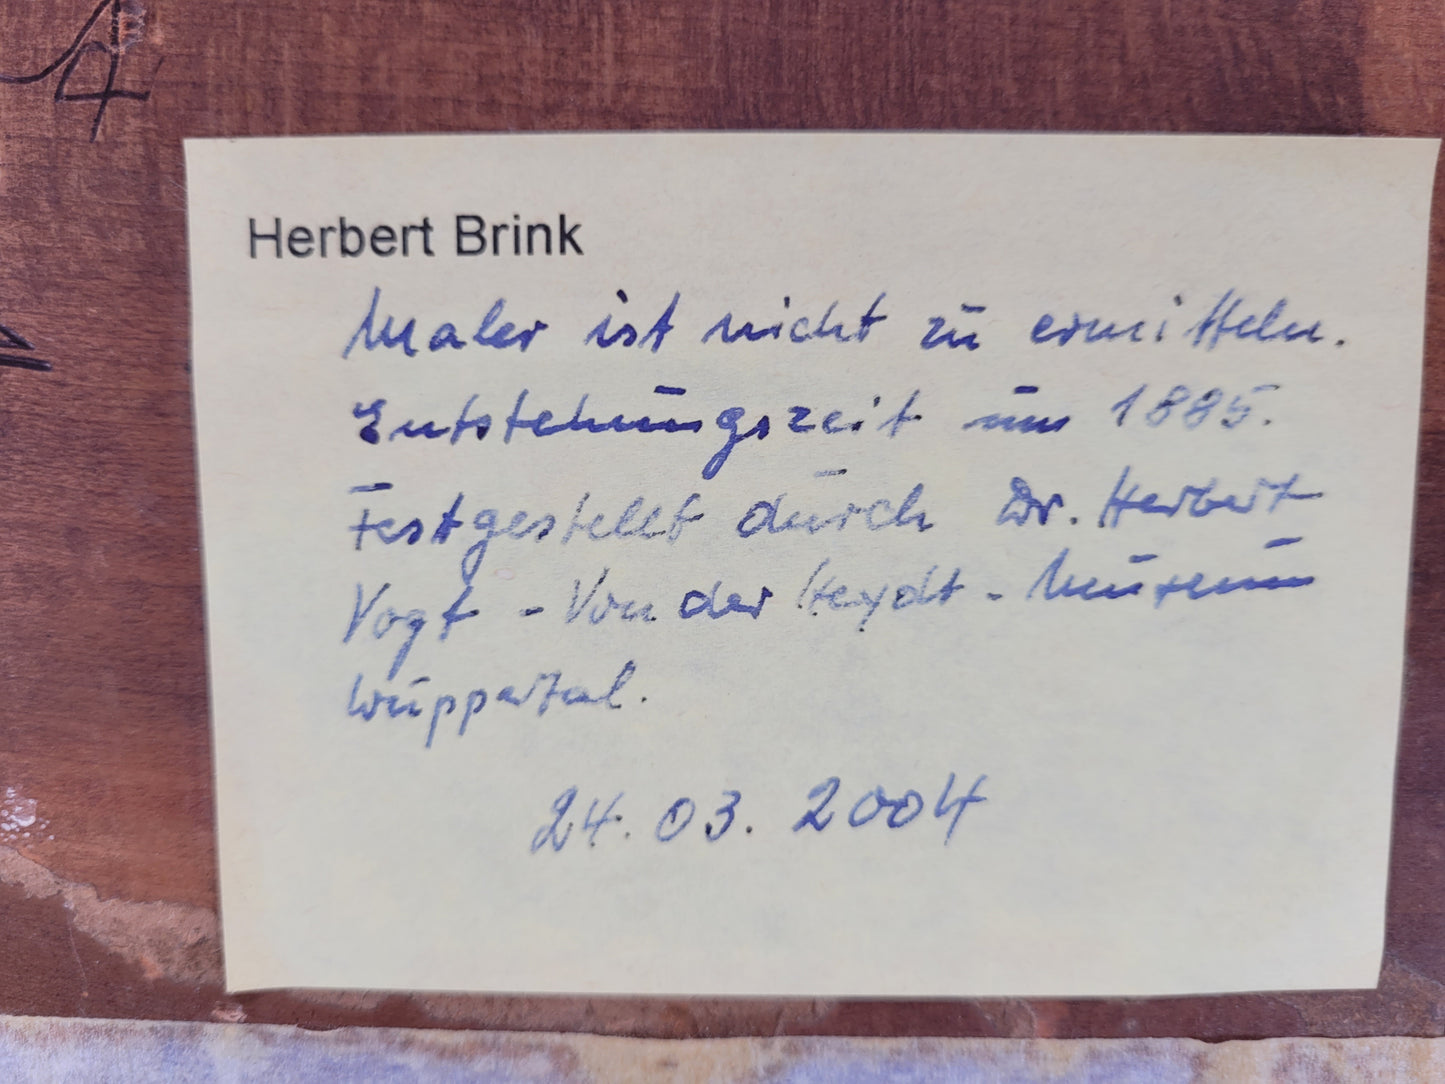 Herbert Brink
Maler ist nicht zu ermitteln.
Entstehungszeit um 1885.
Festgestellt durch Dr. Herbert
Vogt - Von der Heydt - Museum
Wuppertal.
24.03.2004